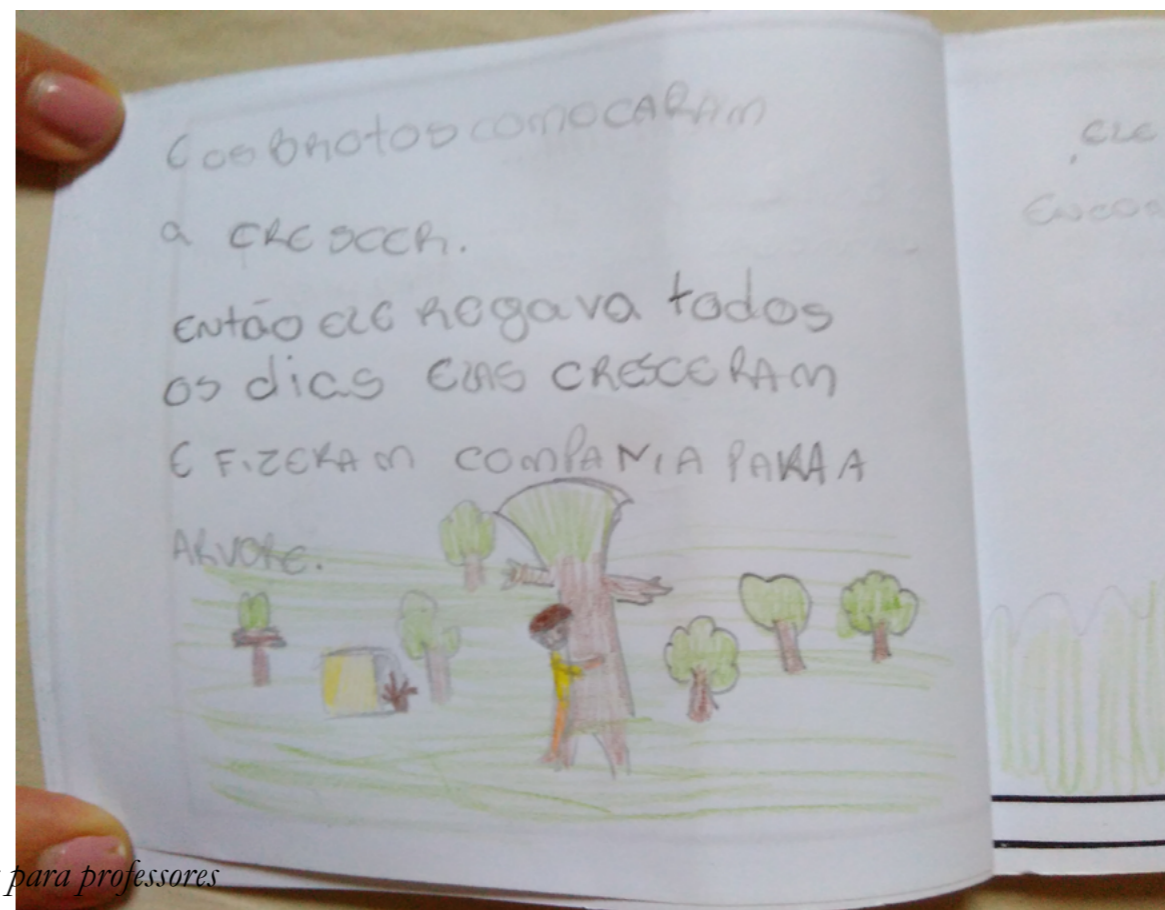 E os BROTOS COMOCARAM
a CRESCER.
ENtão ELE REgava todos
os dias ELAS CRESCERAM
E FIZERAM COMPANIA PARA A
ARVORE.
ELE
ENCOS
para professores